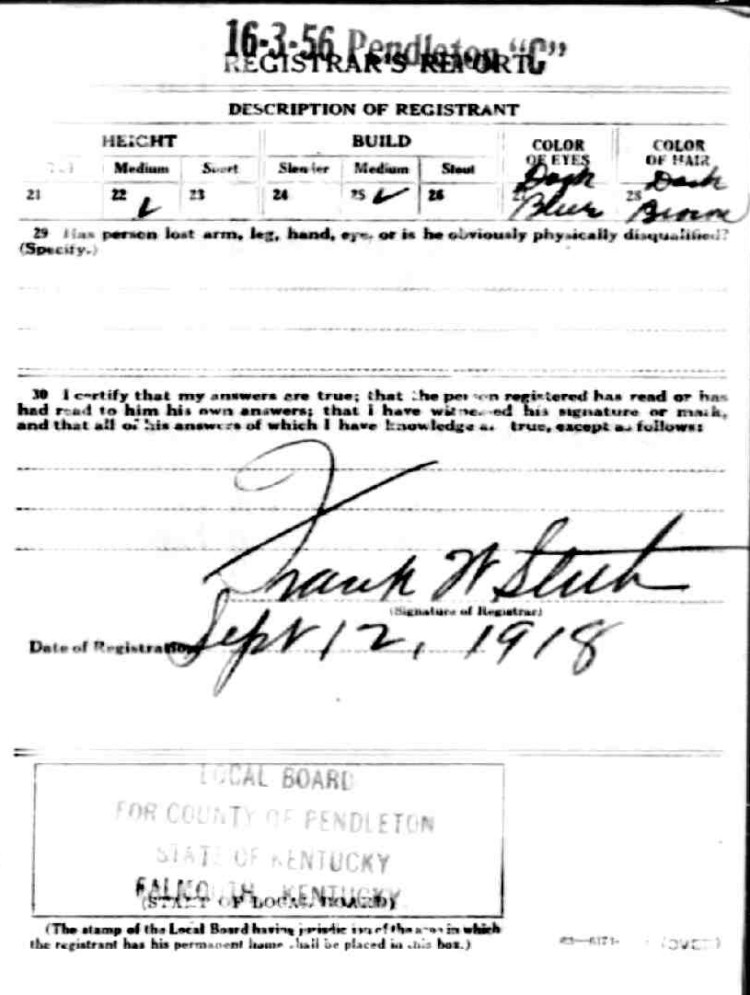 16-3-56 Pendleton "C"
REGISTRAR'S REPORT
DESCRIPTION OF REGISTRANT
HEIGHT BUILD COLOR OF EYES COLOR OF HAIR
Medium Short Slender Medium Stout
21 22 ✓ 23 24 25 ✓ 26 Dark Blue 28 Dark Brown
29 Has person lost arm, leg, hand, eye, or is he obviously physically disqualified?
(Specify.)
30 I certify that my answers are true; that the person registered has read or has
had read to him his own answers; that I have witnessed his signature or mark,
and that all of his answers of which I have knowledge are true, except as follows:
Frank W
(Signature of Registrar)
Date of Registration Sept 12, 1918
LOCAL BOARD
FOR COUNTY OF PENDLETON
STATE OF KENTUCKY
FALMOUTH, KENTUCKY
(STAMP OF LOCAL BOARD)
(The stamp of the Local Board having jurisdiction of the area in which
the registrant has his permanent home shall be placed in this box.)
(OVER)